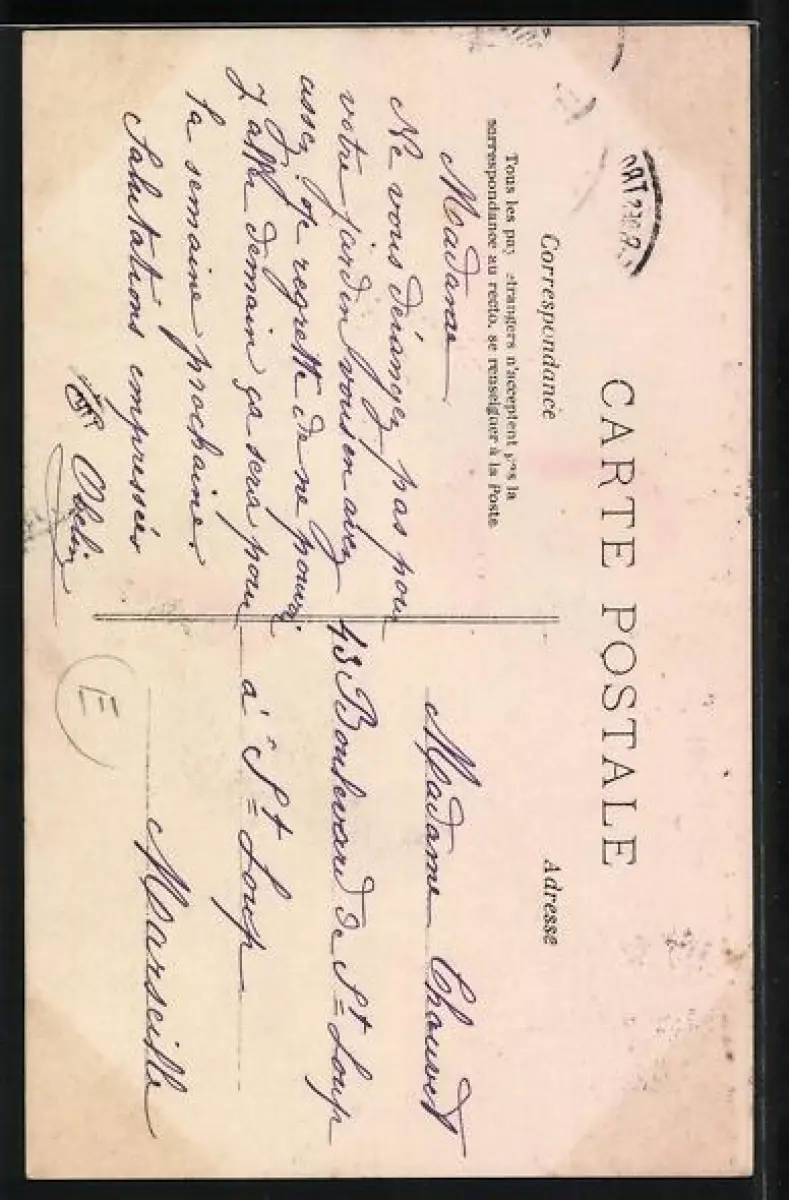 CARTE POSTALE
Correspondance
Tous les pays étrangers n'acceptent pas la
correspondance au recto, se renseigner à la Poste
Madame
Ne vous dérangez pas pour
votre jardin vous en avez
assez je regrette de ne pouvoir
demain ça sera pour
la semaine prochaine.
Salutations empressées
Adresse
Madame Chouvet
43 Boulevard de St Loup
à St Loup
Marseille
E